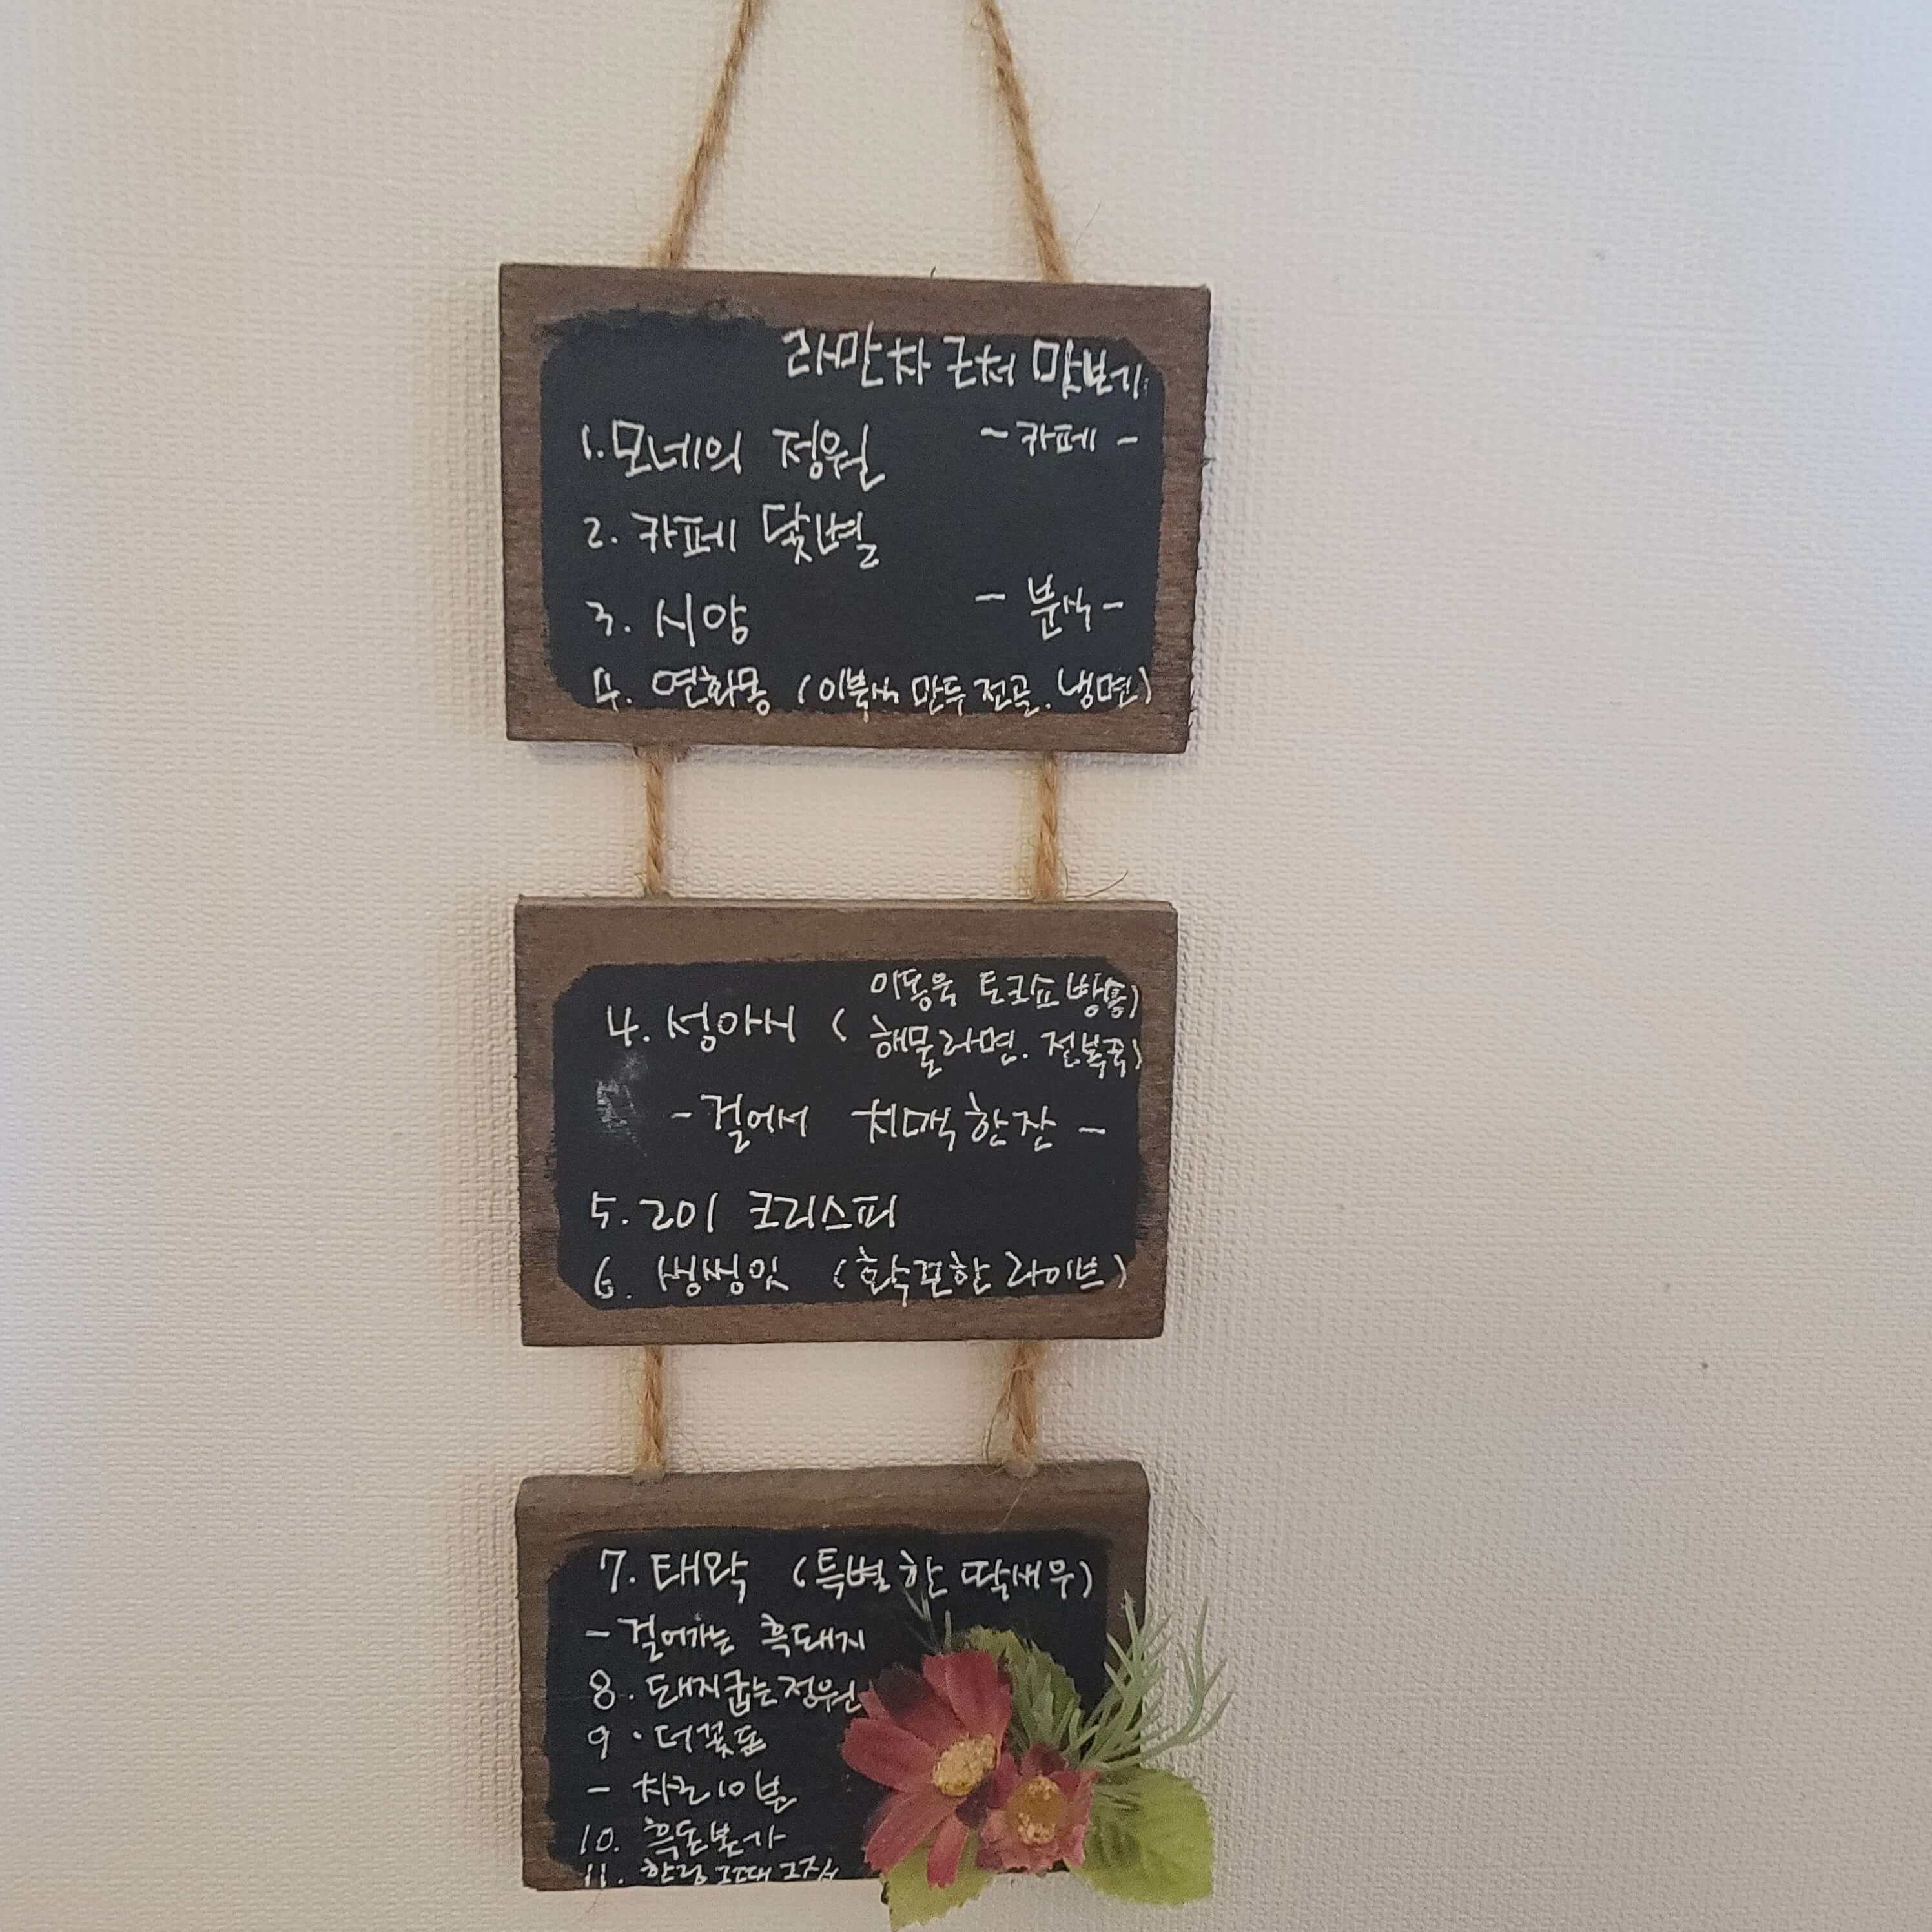 라만차 근처 맛보기
1. 모네의 정원 - 카페 -
2. 카페 닻별
3. 시양 - 분식 -
4. 연화몽 (이북식 만두 전골. 냉면)
4. 섬아시 ( 이동욱 토크쇼 방송)
해물라면. 전복죽)
- 걸어서 치맥 한잔 -
5. 201 크리스피
6. 씽씽잇 (함숙포한 라이브)
7. 태왁 (특별한 딱새우)
- 걸어가는 흑돼지
8. 돼지굽는정원
9. 더꽃돈
- 차로 10분
10. 흑돈본가
11. 한림